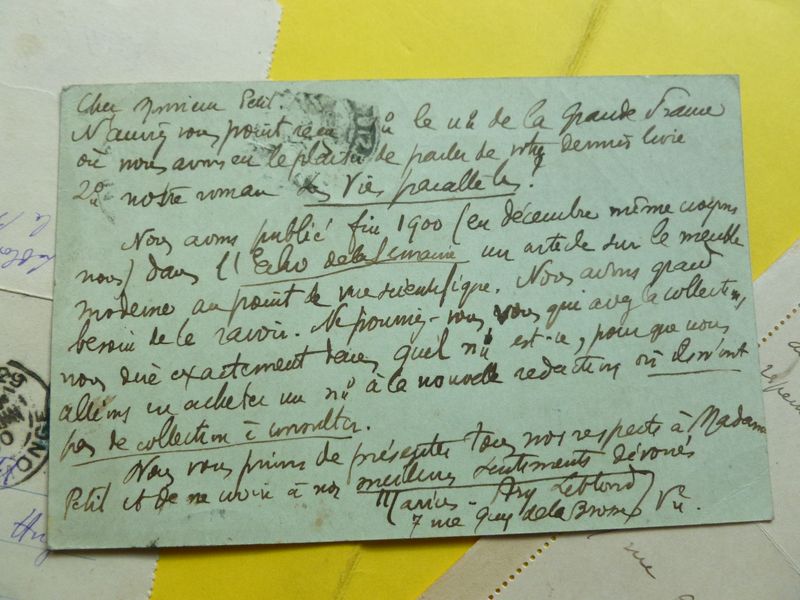 Cher Monsieur Petit.
N'auriez vous point reçu le no de la Grande France
où nous avons eu le plaisir de parler de votre dernier livre
2o notre roman Les Vies parallèles ?
Nous avons publié fin 1900 (en décembre même croyons
nous) dans l'Echo de la Semaine un article sur le meuble
moderne au point de vue scientifique. Nous avons grand
besoin de le ravoir. Ne pourriez-vous, vous qui avez la collection,
nous dire exactement dans quel no est-ce, pour que nous
allions en acheter un no à la nouvelle redaction où ils n'ont
pas de collection à consulter.
Nous vous prions de présenter tous nos respects à Madame
Petit et de croire à nos meilleurs sentiments dévoués
Marius-Ary Leblond
7 rue Guy de la Brosse Ve.
ONGE